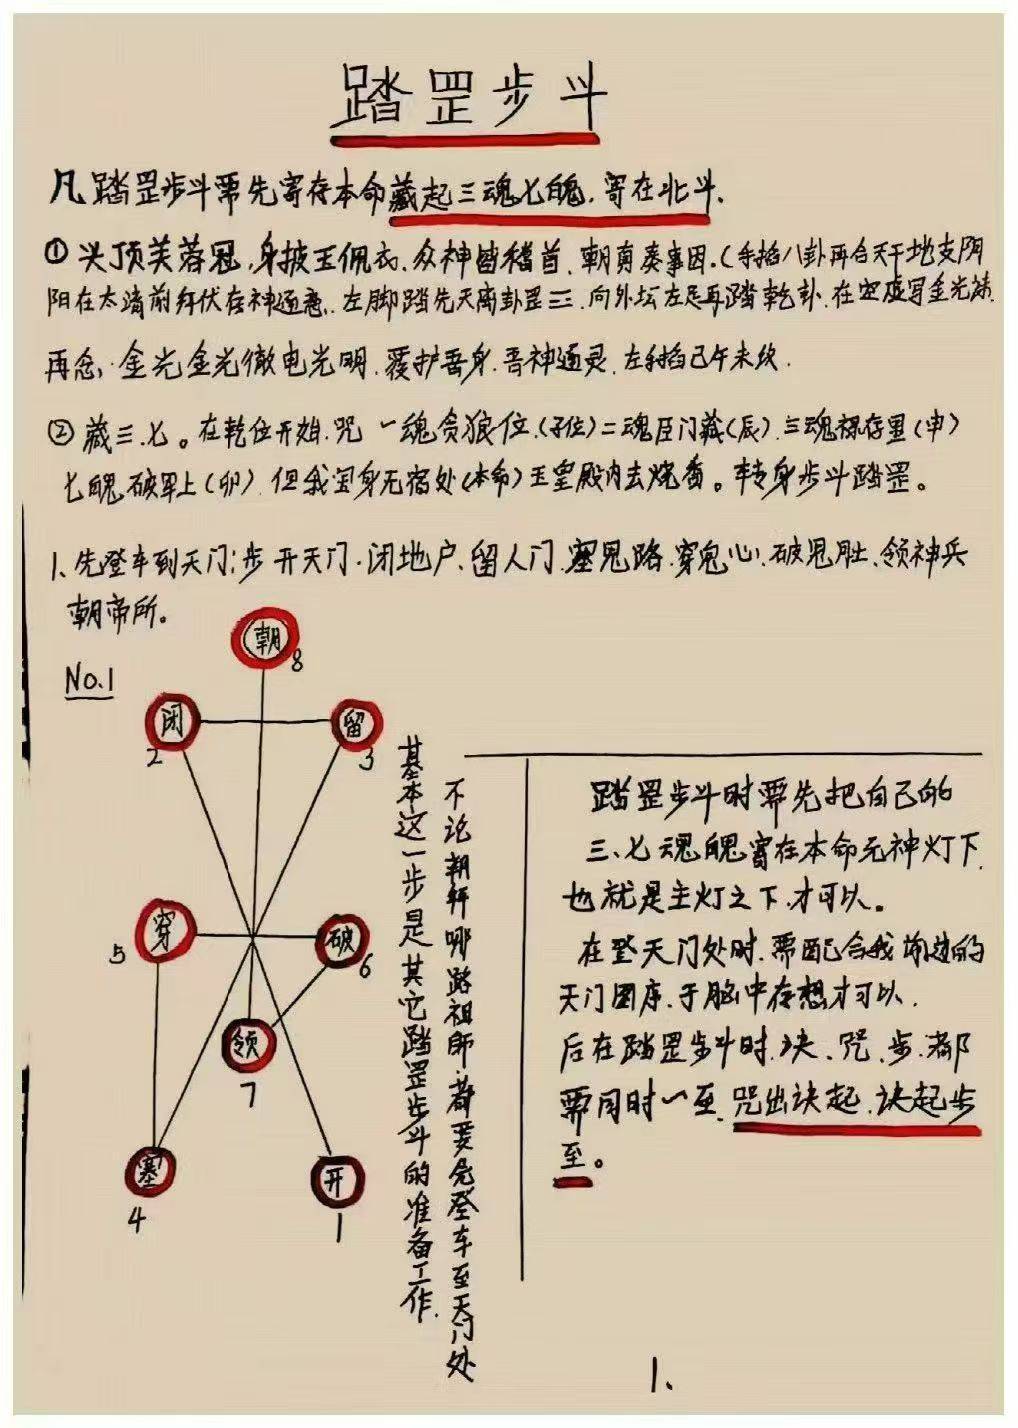 踏罡步斗
凡踏罡步斗需先寄存本命藏起三魂七魄,寄在北斗.
① 头顶芙蓉冠,身披玉佩衣,众神皆稽首,朝真奏事因.(手掐八卦再合天干地支阴
阳在太清前拜伏存神通意.左脚踏先天离卦罡三.向外坛左足再踏乾卦.在空虚写金光
再念:金光金光徹电光明.覆护吾身.吾神通灵.左手掐己午未纹.
② 藏三.七。在乾位开始.咒 一魂贪狼位.(子位)二魂巨门藏(辰).三魂禄存里(申)
七魄破军上(卯).但我宝身无宿处(本命)玉皇殿内去烧香。转身步斗踏罡。
1、先登车到天门:步 开天门.闭地户、留人门.塞鬼路.穿鬼心.破鬼肚、领神兵
朝帝所。
No.1
朝
8
闭
2
留
3
穿
5
破
6
领
7
塞
4
开
1
不论朝拜哪路祖师.都要先登车至天门处
基本这一步是其它踏罡步斗的准备工作.
踏罡步斗时需先把自己的
三、七魂魄寄在本命元神灯下
也就是主灯之下.才可以。
在登天门处时.需配合我前边的
天门图序.于脑中存想才可以.
后在踏罡步斗时.决、咒、步.都
需同时一至.咒出诀起.诀起步
至。
1、